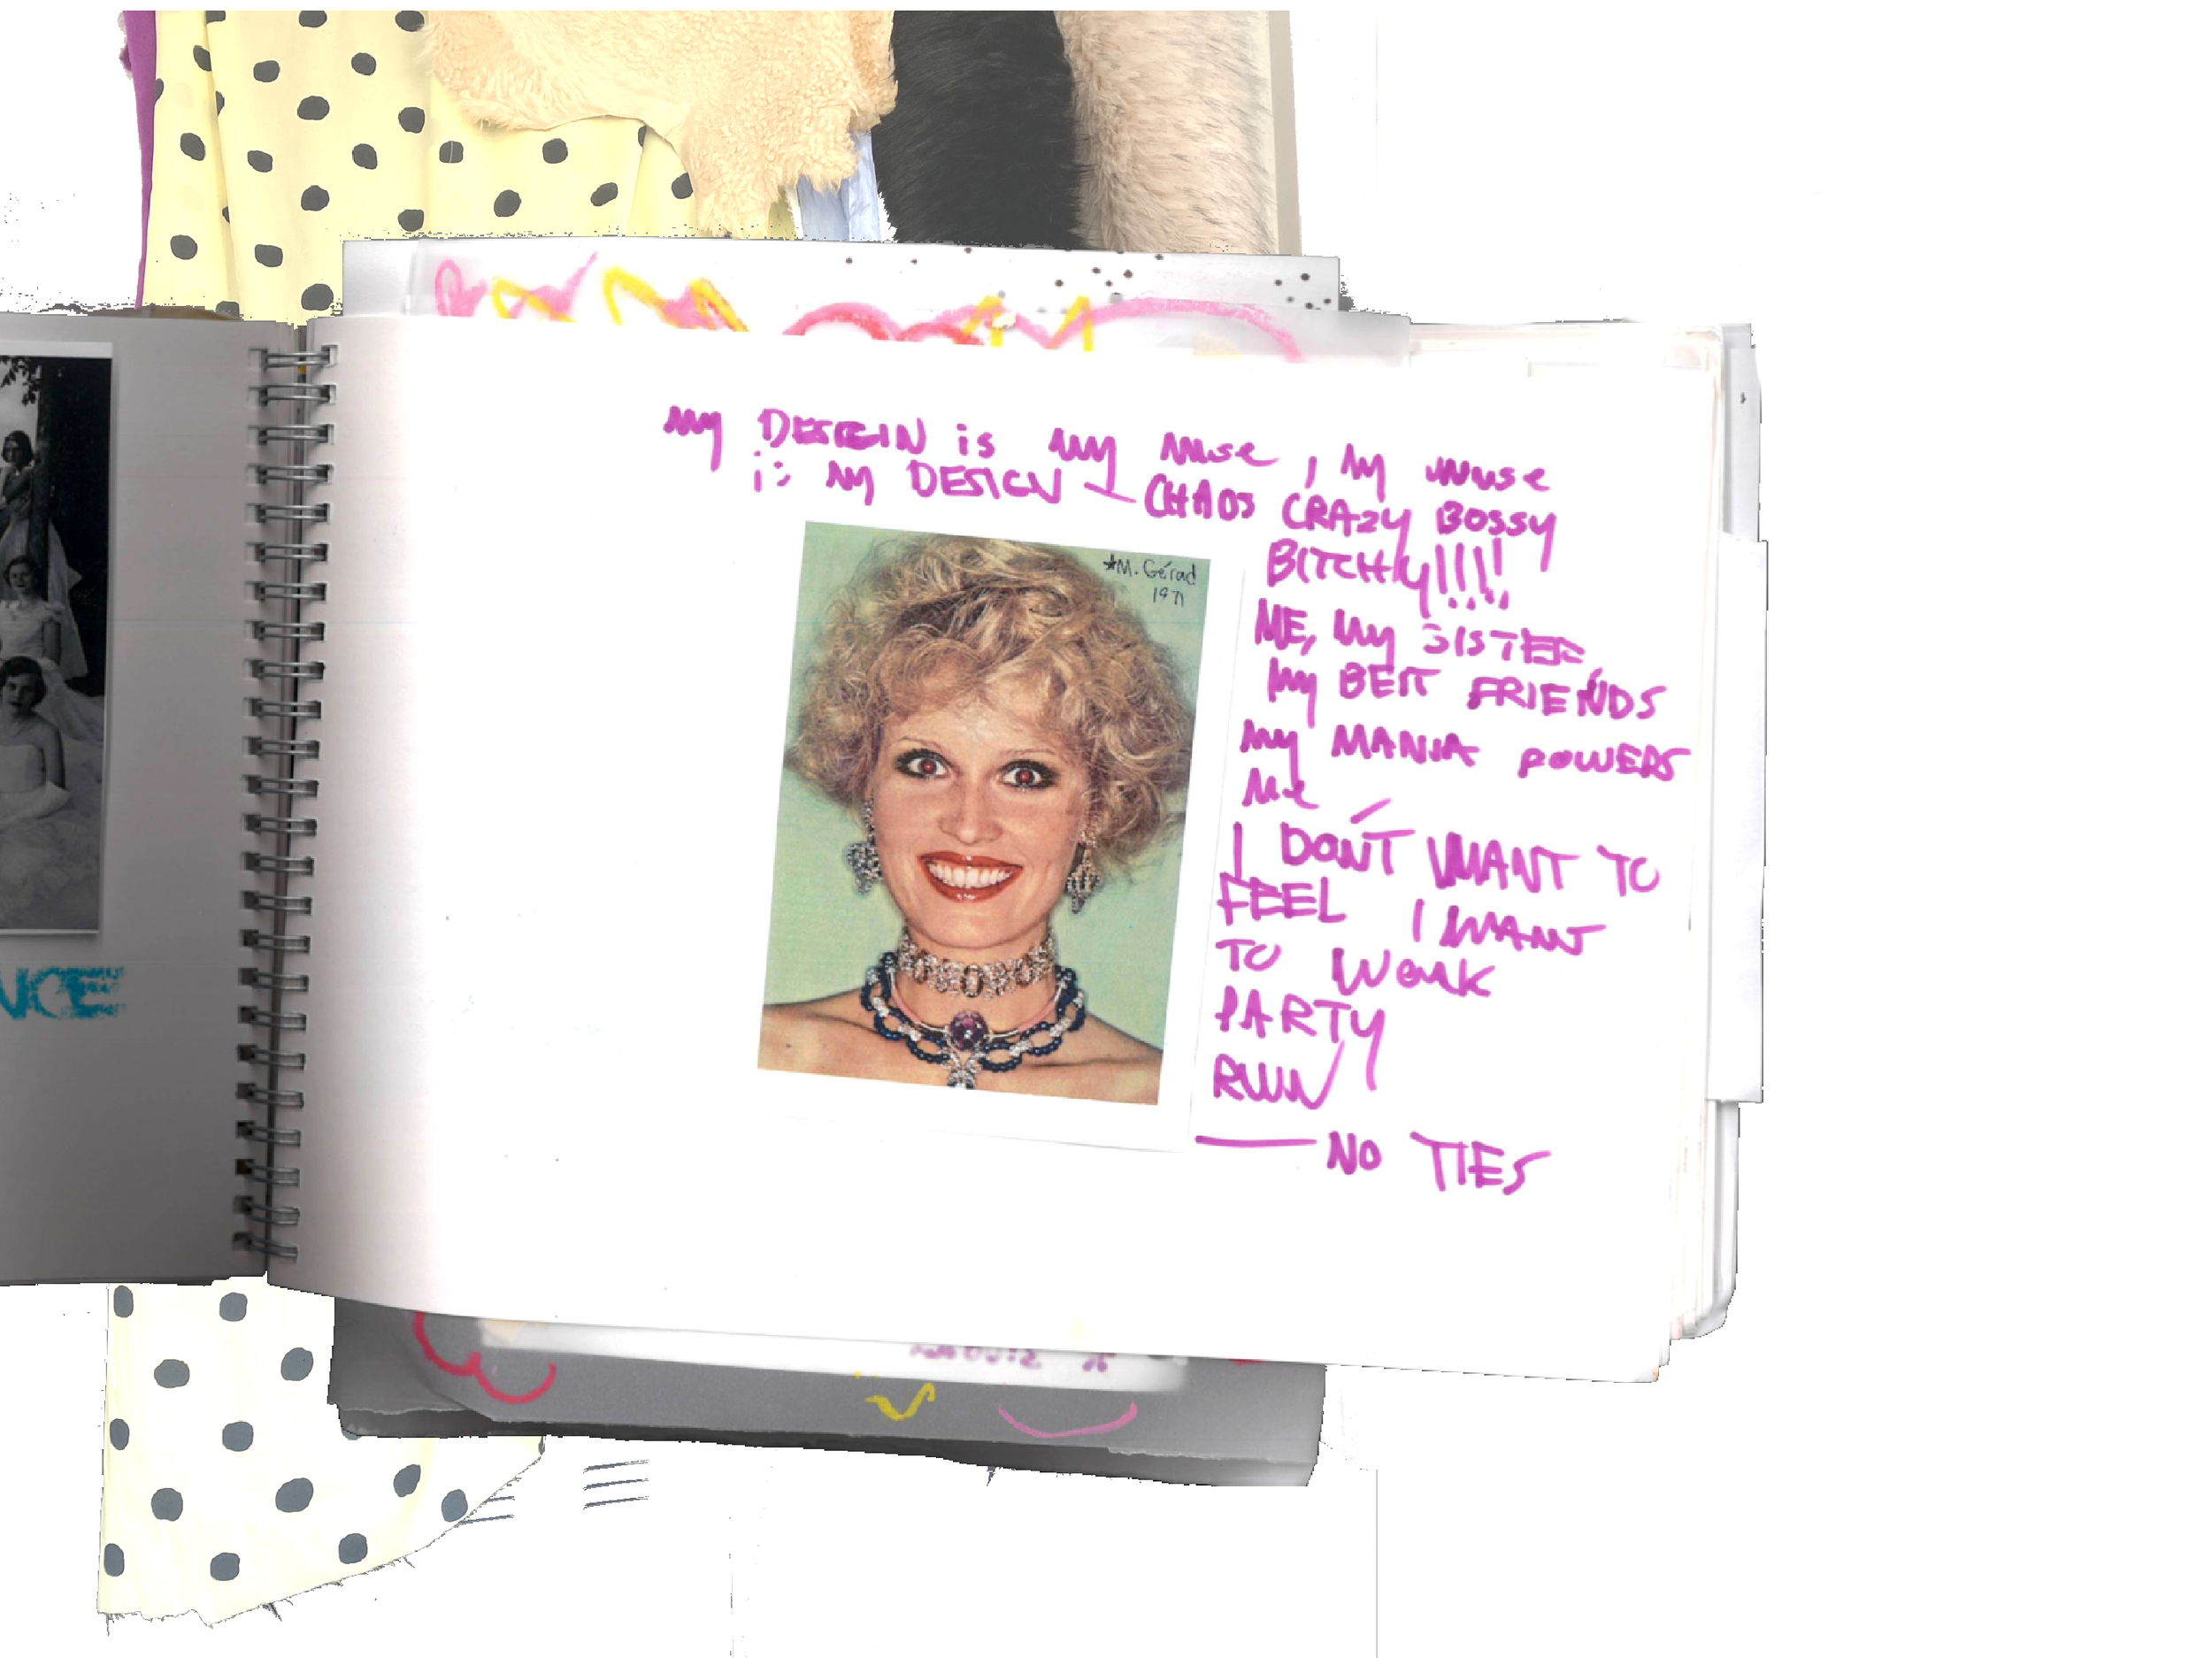 My DESIGIN is my muse, my muse
is my DESIGN – CHAOS CRAZY BOSSY
BITCHy!!!!
ME, my SISTER,
my BEST FRIENDS
my MANIA POWERS
Me
I DON'T WANT TO
FEEL I WANT
TO WORK
PARTY
RUN
— NO TIES
*M. Gérad
1971
NCE